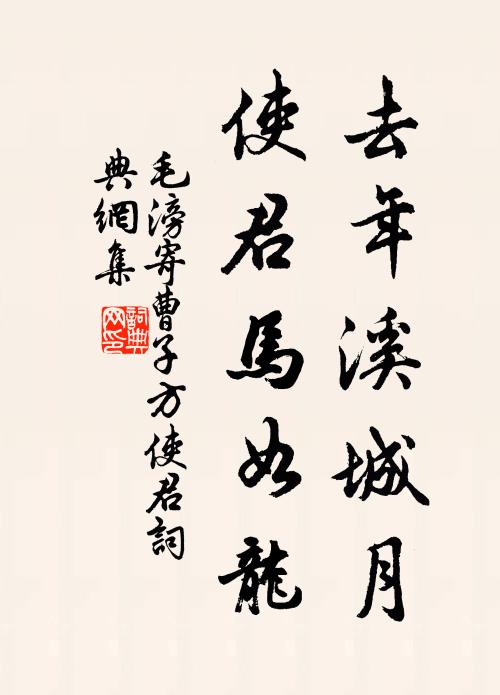 去年溪城月
使君馬如龍
毛滂寄曹子方使君詞
典網集
詞典网印